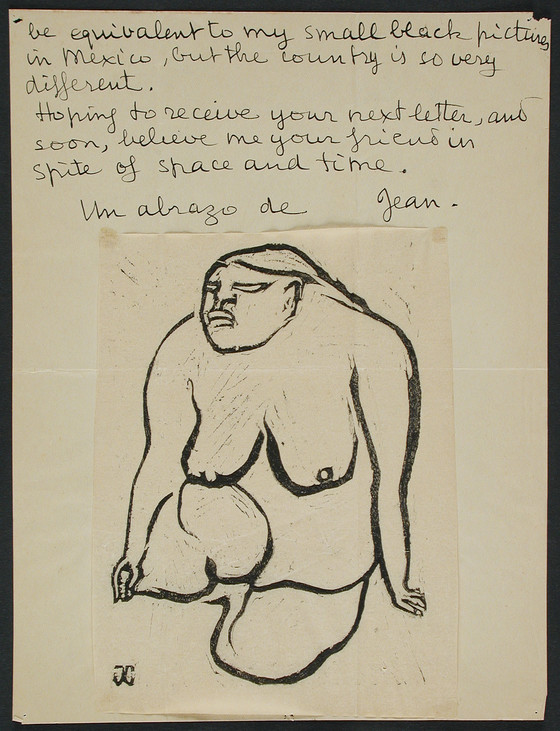 be equivalent to my small black pictures
in Mexico, but the country is so very
different.
Hoping to receive your next letter, and
soon, believe me your friend in
spite of space and time.
Un abrazo de Jean.
JC